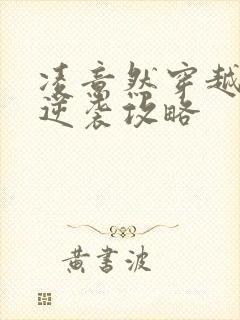 凌意然穿越
逆袭攻略
黄书波